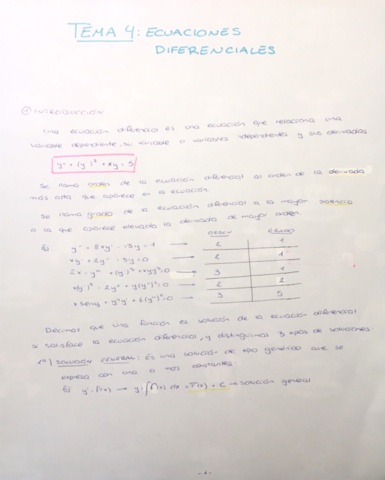 TEMA 4: ECUACIONES
DIFERENCIALES
① INTRODUCCIÓN
Una ecuación diferencial es una ecuación que relaciona una
variable dependiente, su variable o variables independientes y sus derivadas
y'' + (y')² + xy = 5
Se llama orden de la ecuación diferencial al orden de la derivada
más alta que aparece en la ecuación.
Se llama grado de la ecuación diferencial a la mayor potencia
a la que aparece elevada la derivada de mayor orden.
ORDEN GRADO
y'' + 8xy' - 13y = 1 → 2 1
xy + 2y'' - 5y = 0 → 2 1
→ 3 1
→ 2 2
→ 3 5
Decimos que una función es solución de la ecuación diferencial
si satisface la ecuación diferencial, y distinguimos tipos de soluciones
1º) SOLUCIÓN GENERAL: Es una solución de tipo genérico que se
expresa con una o más constantes.
Ej y' = f(x) → y = ∫f(x) dx = F(x) + C → solución general